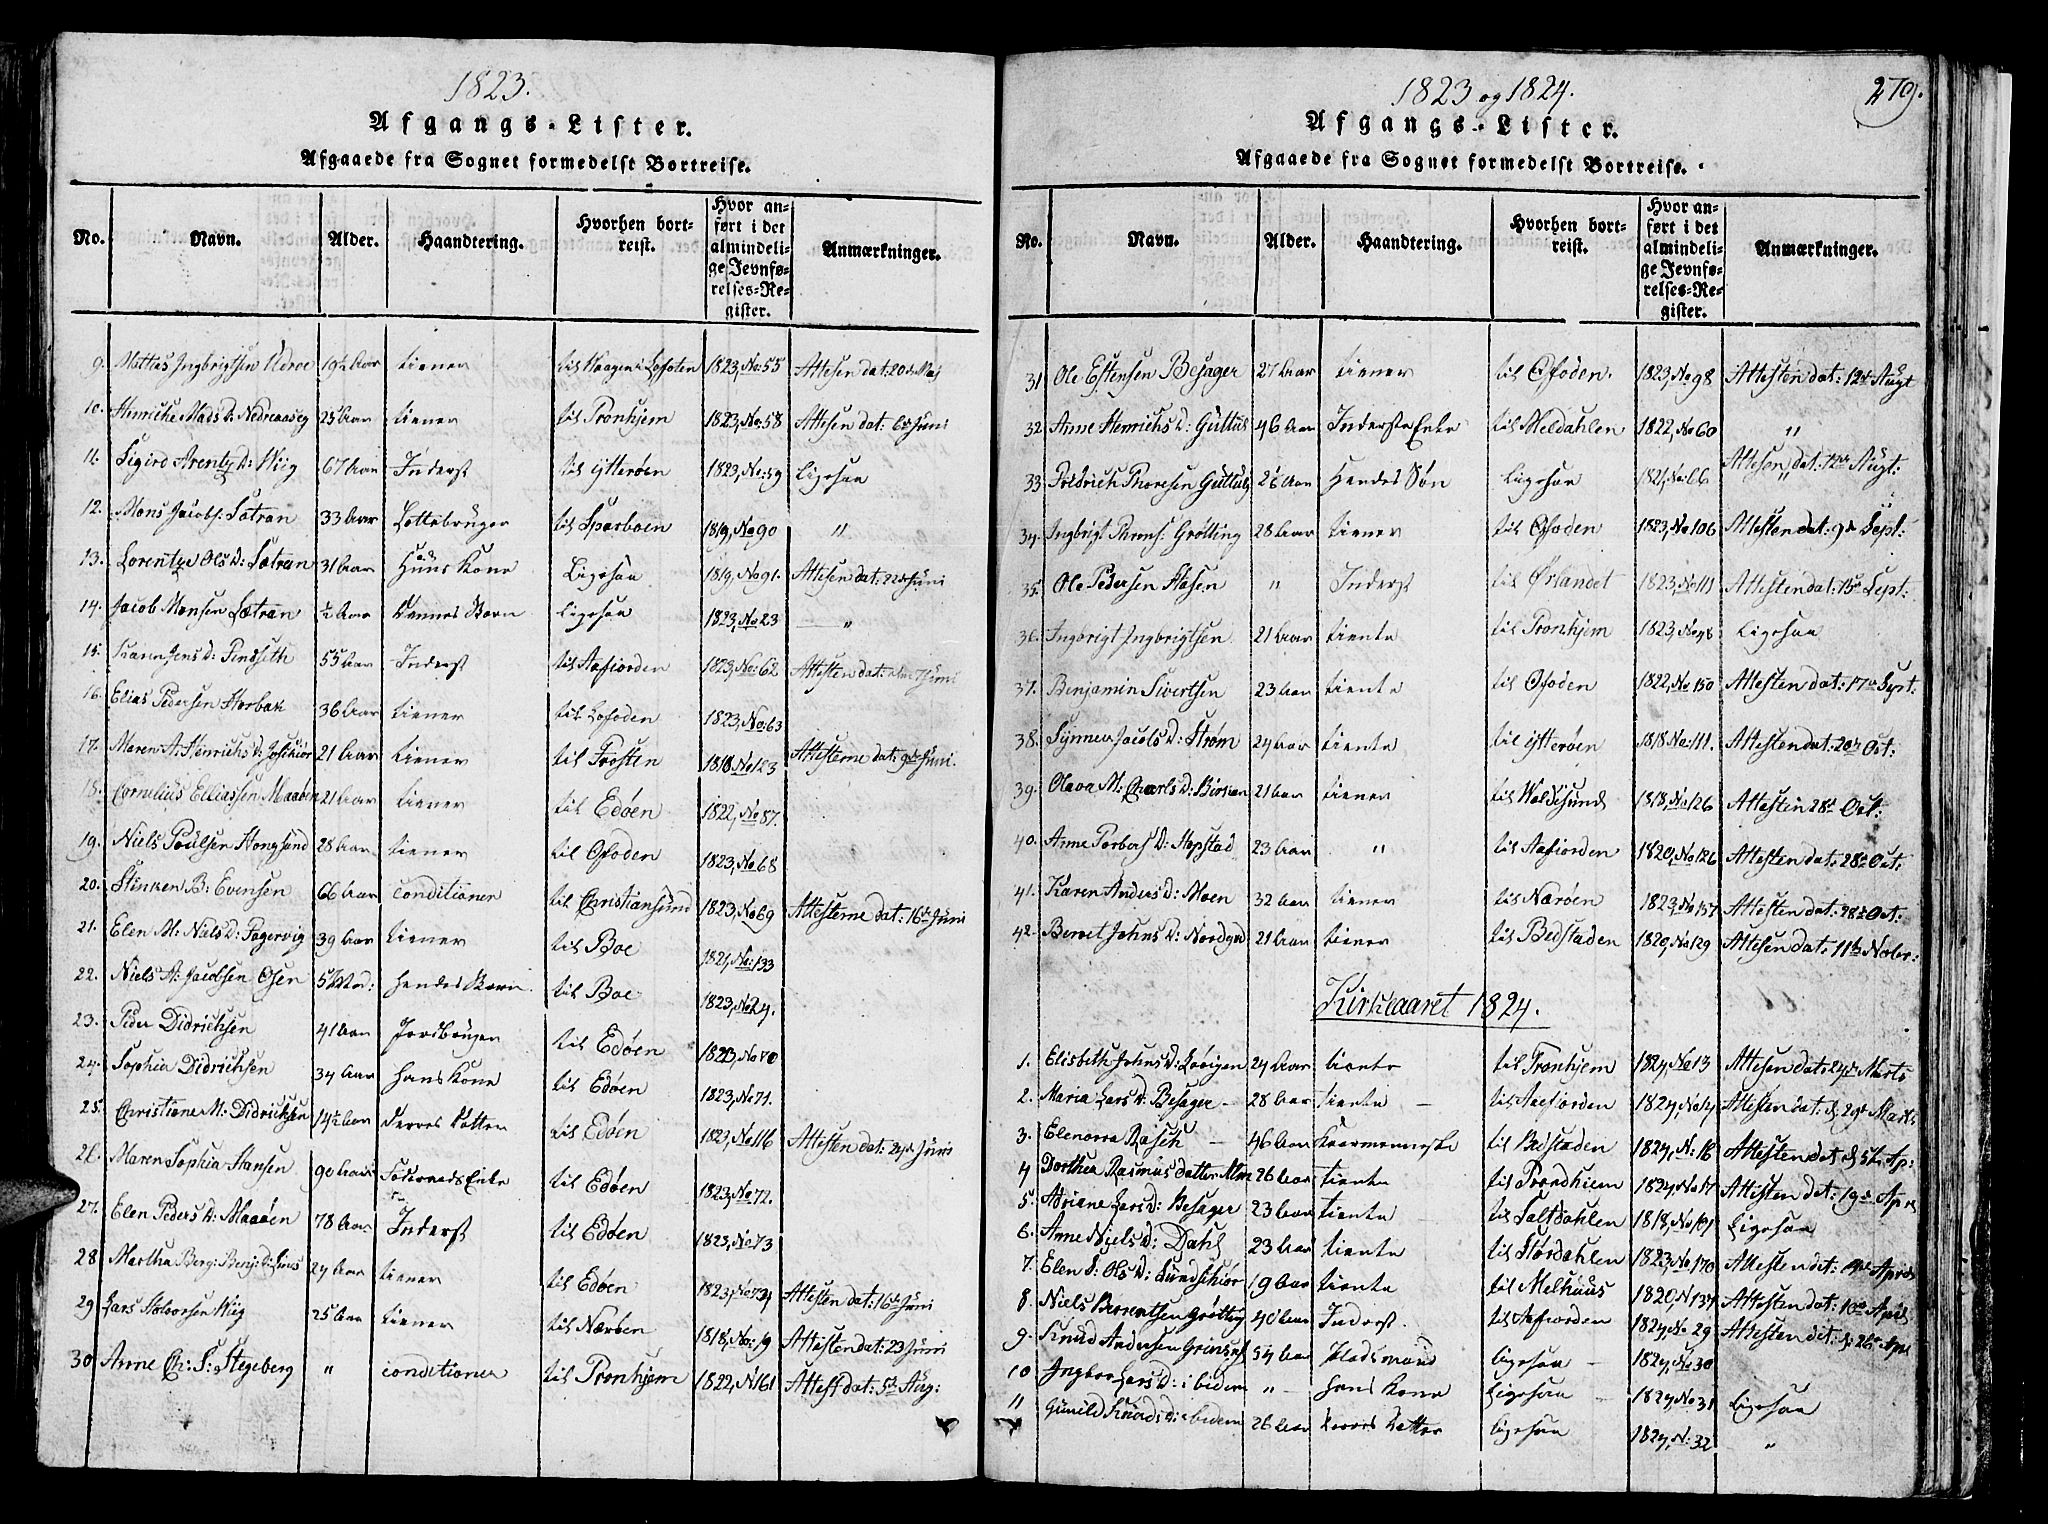 1823.
Afgangs-Lister.
Afgaaede fra Sognet formedelst Bortreise.
No. Navn. Alder. Haandtering. Hvorhen bortreist. Hvor anført i det almindelige Jevnførelses-Register. Anmærkninger.
9. Mattias Ingbrigtsen 19½ Aar tiener til Lofoten 1823, No: 55 Attesten dat: 20de Mai
10. Henricha Mads D: Nedreaaseg 25 Aar tiener til Tronhjem 1823, No: 58 Attesen dat: 6te Juni
11. Sigird Arentz D: Wiig 67 Aar Inderst til Ytterøen 1823, No: 59 Ligesaa
12. Mons Jacobs: Sætran 33 Aar til Sparboen 1819, No 90 "
13. Lorentze Ols D: Sætran 31 Aar Hans Kone Ligesaa 1819, No 91. Attesen dat: 22de Juni
14. Jacob Monsen Sætran ½ Aar Dennes Barn Ligesaa 1823, No 23 "
15. Karen Jens D: 55 Aar Inderst til Aafiorden 1823, No: 62 Attesten dat: Juni
16. Elias Pedersen Harbak 36 Aar tiener til Lofoden 1823, No: 63
17. Maren A: Henrichs D: 21 Aar tiener til Frosten 1818 No 123 Attesterne dat: 9de Juni.
18. Cornelius Elliassen Maaøen 21 Aar tiener til Edøen 1822, No 87.
19. Niels Poulsen Hongsand 28 Aar tiener til Ofoden 1823, No 68
20. Stinken B: Evensen 66 Aar conditioner til Christiansund 1823, No 69 Attesterne dat: 16de Juni
21. Elen M: Niels D: Fagervig 39 Aar tiener til Boe 1821, No: 133
22. Niels A: Jacobsen Osen Hendes Barn til Boe 1823, No 24.
23. Peder Didrichsen 41 Aar Jordbruger til Edøen 1823, No 70
24. Sophia Didrichsen 34 Aar Hans Kone til Edøen 1823, No 71.
25. Christiane M: Didrichsen 14½ Aar Derres Datter til Edøen 1823, No 116 Attesten dat: 24de Juni
26. Maren Sophia Hansen 90 Aar Enke til Edøen 1823, No 72.
27. Elen Peders D: Maaøen 78 Aar Inderst til Edøen 1823, No 73
28 Martha Berg: Benj: D: 24 Aar tiener til Edøen 1823, No 74 Attesten dat: 16de Juni
29 Lars Halvorsen Wiig 25 Aar tiener til Nærøen 1818, No: 19 Attesten dat: 23 Juni
30 Anne Ch: S: Stegeberg " conditioner til Tronhjem 1822, N 161 Attest dat: 5te Aug:
1823 og 1824.
279.
Afgangs-Lister.
Afgaaede fra Sognet formedelst Bortreise.
No. Navn. Alder. Haandtering. Hvorhen bortreist. Hvor anført i det almindelige Jevnførelses-Register. Anmærkninger.
31 Ole Estensen Besager 27 Aar tiener til Ofoden. 1823, No 98 Attesten dat: 12te Augt
32 Anne Henrichs D: Guttuls 46 Aar Inderste Enke til Meldahlen 1822, No 60 "
33 Fredrich Thoresen Guttuls 26 Aar Hendes Søn Ligesaa 1821, No: 66 Attesen dat: 12te Augt:
34. Ingbrigt Throns: Grøtting 28 Aar tiener til Ofoden 1823, No 106 Attesten dat: 9de Sept:
35. Ole Pedersen Hasen " Inderst til Ørlandet 1823, No 111 Attesten dat: 15de Sept:
36. Ingbrigt Ingbrigtsen 21 Aar tiente til Tronhjem 1823, No 48 Ligesaa
37. Benjamin Sivertsen 23 Aar tiente til Ofoden 1822, No 150 Attesten dat: 17de Sept:
38. Synnev Jacobs D: Strøm 24 Aar tiente til Ytterøen 1818 No: 111. Attesten dat: 20de Oct:
39. Olava M: Charls D: 21 Aar tiener til Waldesund 1818, No 126 Attesten 28de Oct:
40. Anne Torbers D: Hopstad 23 Aar " til Aafiorden 1820, No 126 Attesten dat: 28de Oct:
41. Karen Anders D: Moen 32 Aar tiener til Nærøen 1823, No 157 Attesten dat: 28de Oct:
42. Beret Johns D: Nordgrd 21 Aar tiener til Bedstaden 1820, No 129 Attesten dat: 11te Nobr:
Kirkeaaret 1824.
1. Elisbeth Johns D: 24 Aar tiente til Tronhjem 1824, No 13 Attesen dat: 24de Marts
2. Maria Lars D: Besager - 28 Aar tiente - til Aafiorden 1824, No 14 Attesten dat: d. 29de Marts
3. Elenorra Rasch - 46 Aar til Bedstaden 1824, N: 16 Attesten dat d. 5te Ap:
4 Dorthea Rasmus datter 26 Aar tiente til Trondhiem 1824, No 17 Attesten dat: 19de April
5. Adriane Lars D: Besager 23 Aar tiente - til Saltdahlen 1818, No 191 Ligesaa
6. Anne Niels D: Dahl 23 Aar tiente til Størdahlen 1823, No 170 Attesten dat: April
7. Elen S: Ols D: Sundschiør 19 Aar tiente til Melhuus 1820, N 137 Attesten dat: 10de April
8. Niels Berentsen Grøtting 40 Aar Inderst. til Aafiorden 1824, No 29 Attesten dat: d: 26de Apr
9. Knud Andersen 54 Aar Pladsmand Ligesaa - 1824, No 30
10 Ingbor Lars D: ibidem " - Hans Kone Ligesaa - 1824, No 31 Ligesaa
11 Gunild Knuds D: ibidem 26 Aar Derres Datter Ligesaa 1824, N: 32 "